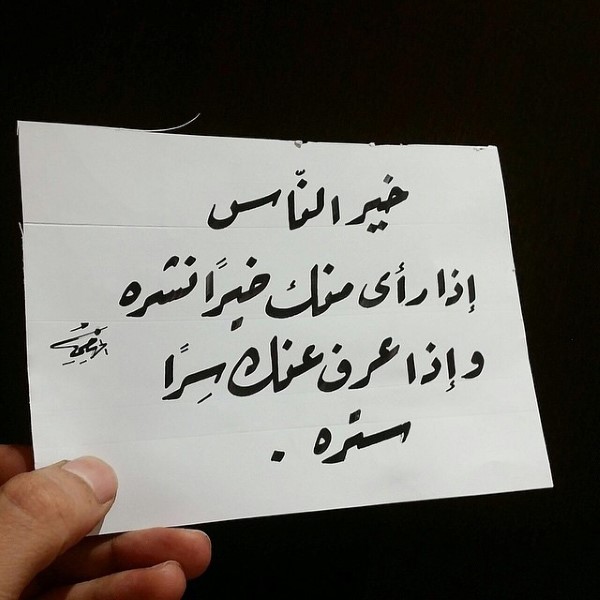 خير النّاس
إذا رأى منك خيرًا نشره
وإذا عرف عنك سِرًا
ستره .